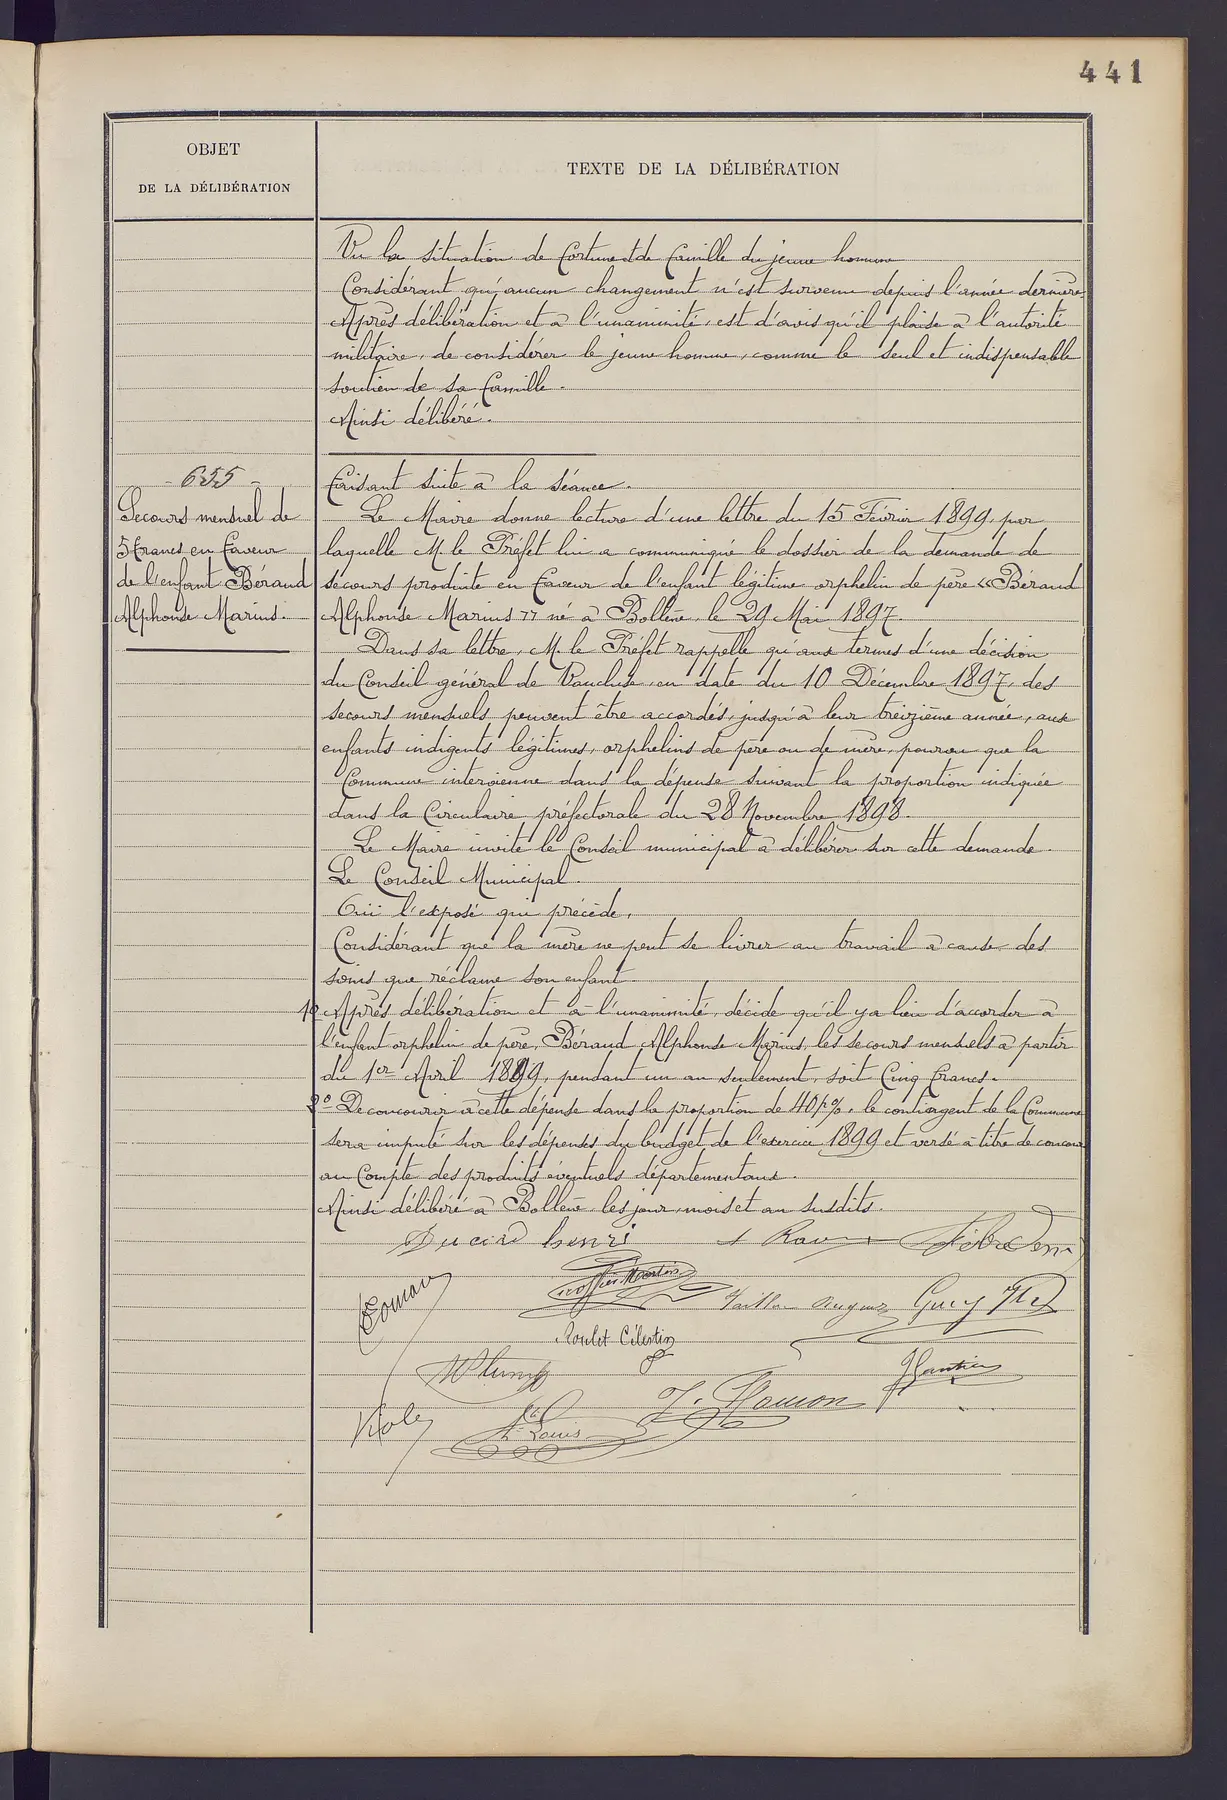 441
OBJET
DE LA DÉLIBÉRATION
TEXTE DE LA DÉLIBÉRATION
Vu la situation de fortune et de famille du jeune homme
Considérant qu'aucun changement n'est survenu depuis l'année dernière.
Après délibération et à l'unanimité, est d'avis qu'il plaise à l'autorité
militaire, de considérer le jeune homme, comme le seul et indispensable
soutien de sa famille.
Ainsi délibéré.
- 655 -
Secours mensuel de
5 francs en faveur
de l'enfant Béraud
Alphonse Marius.
Faisant suite à la séance.
Le Maire donne lecture d'une lettre du 15 Février 1899, par
laquelle M. le Préfet lui a communiqué le dossier de la demande de
secours produite en faveur de l'enfant légitime orphelin de père « Béraud
Alphonse Marius » né à Bollène, le 29 Mai 1897.
Dans sa lettre, M. le Préfet rappelle qu'aux termes d'une décision
du Conseil général de Vaucluse, en date du 10 Décembre 1897, des
secours mensuels peuvent être accordés, jusqu'à leur treizième année, aux
enfants indigents légitimes, orphelins de père ou de mère, pourvu que la
Commune intervienne dans la dépense suivant la proportion indiquée
dans la Circulaire préfectorale du 28 Novembre 1898.
Le Maire invite le Conseil municipal à délibérer sur cette demande.
Le Conseil Municipal.
Ouï l'exposé qui précède,
Considérant que la mère ne peut se livrer au travail à cause des
soins que réclame son enfant.
1º Après délibération et à l'unanimité, décide qu'il y a lieu d'accorder à
l'enfant orphelin de père, Béraud Alphonse Marius, les secours mensuels à partir
du 1er Avril 1899, pendant un an seulement, soit Cinq francs.
2º De concourir à cette dépense dans la proportion de 40 p%, le contingent de la Commune
sera imputé sur les dépenses du budget de l'exercice 1899 et versé à titre de concours
au Compte des produits éventuels départementaux.
Ainsi délibéré à Bollène, les jour, mois et an susdits.
Ducord henri
Roulet Célestin
J. Gautier
Louis